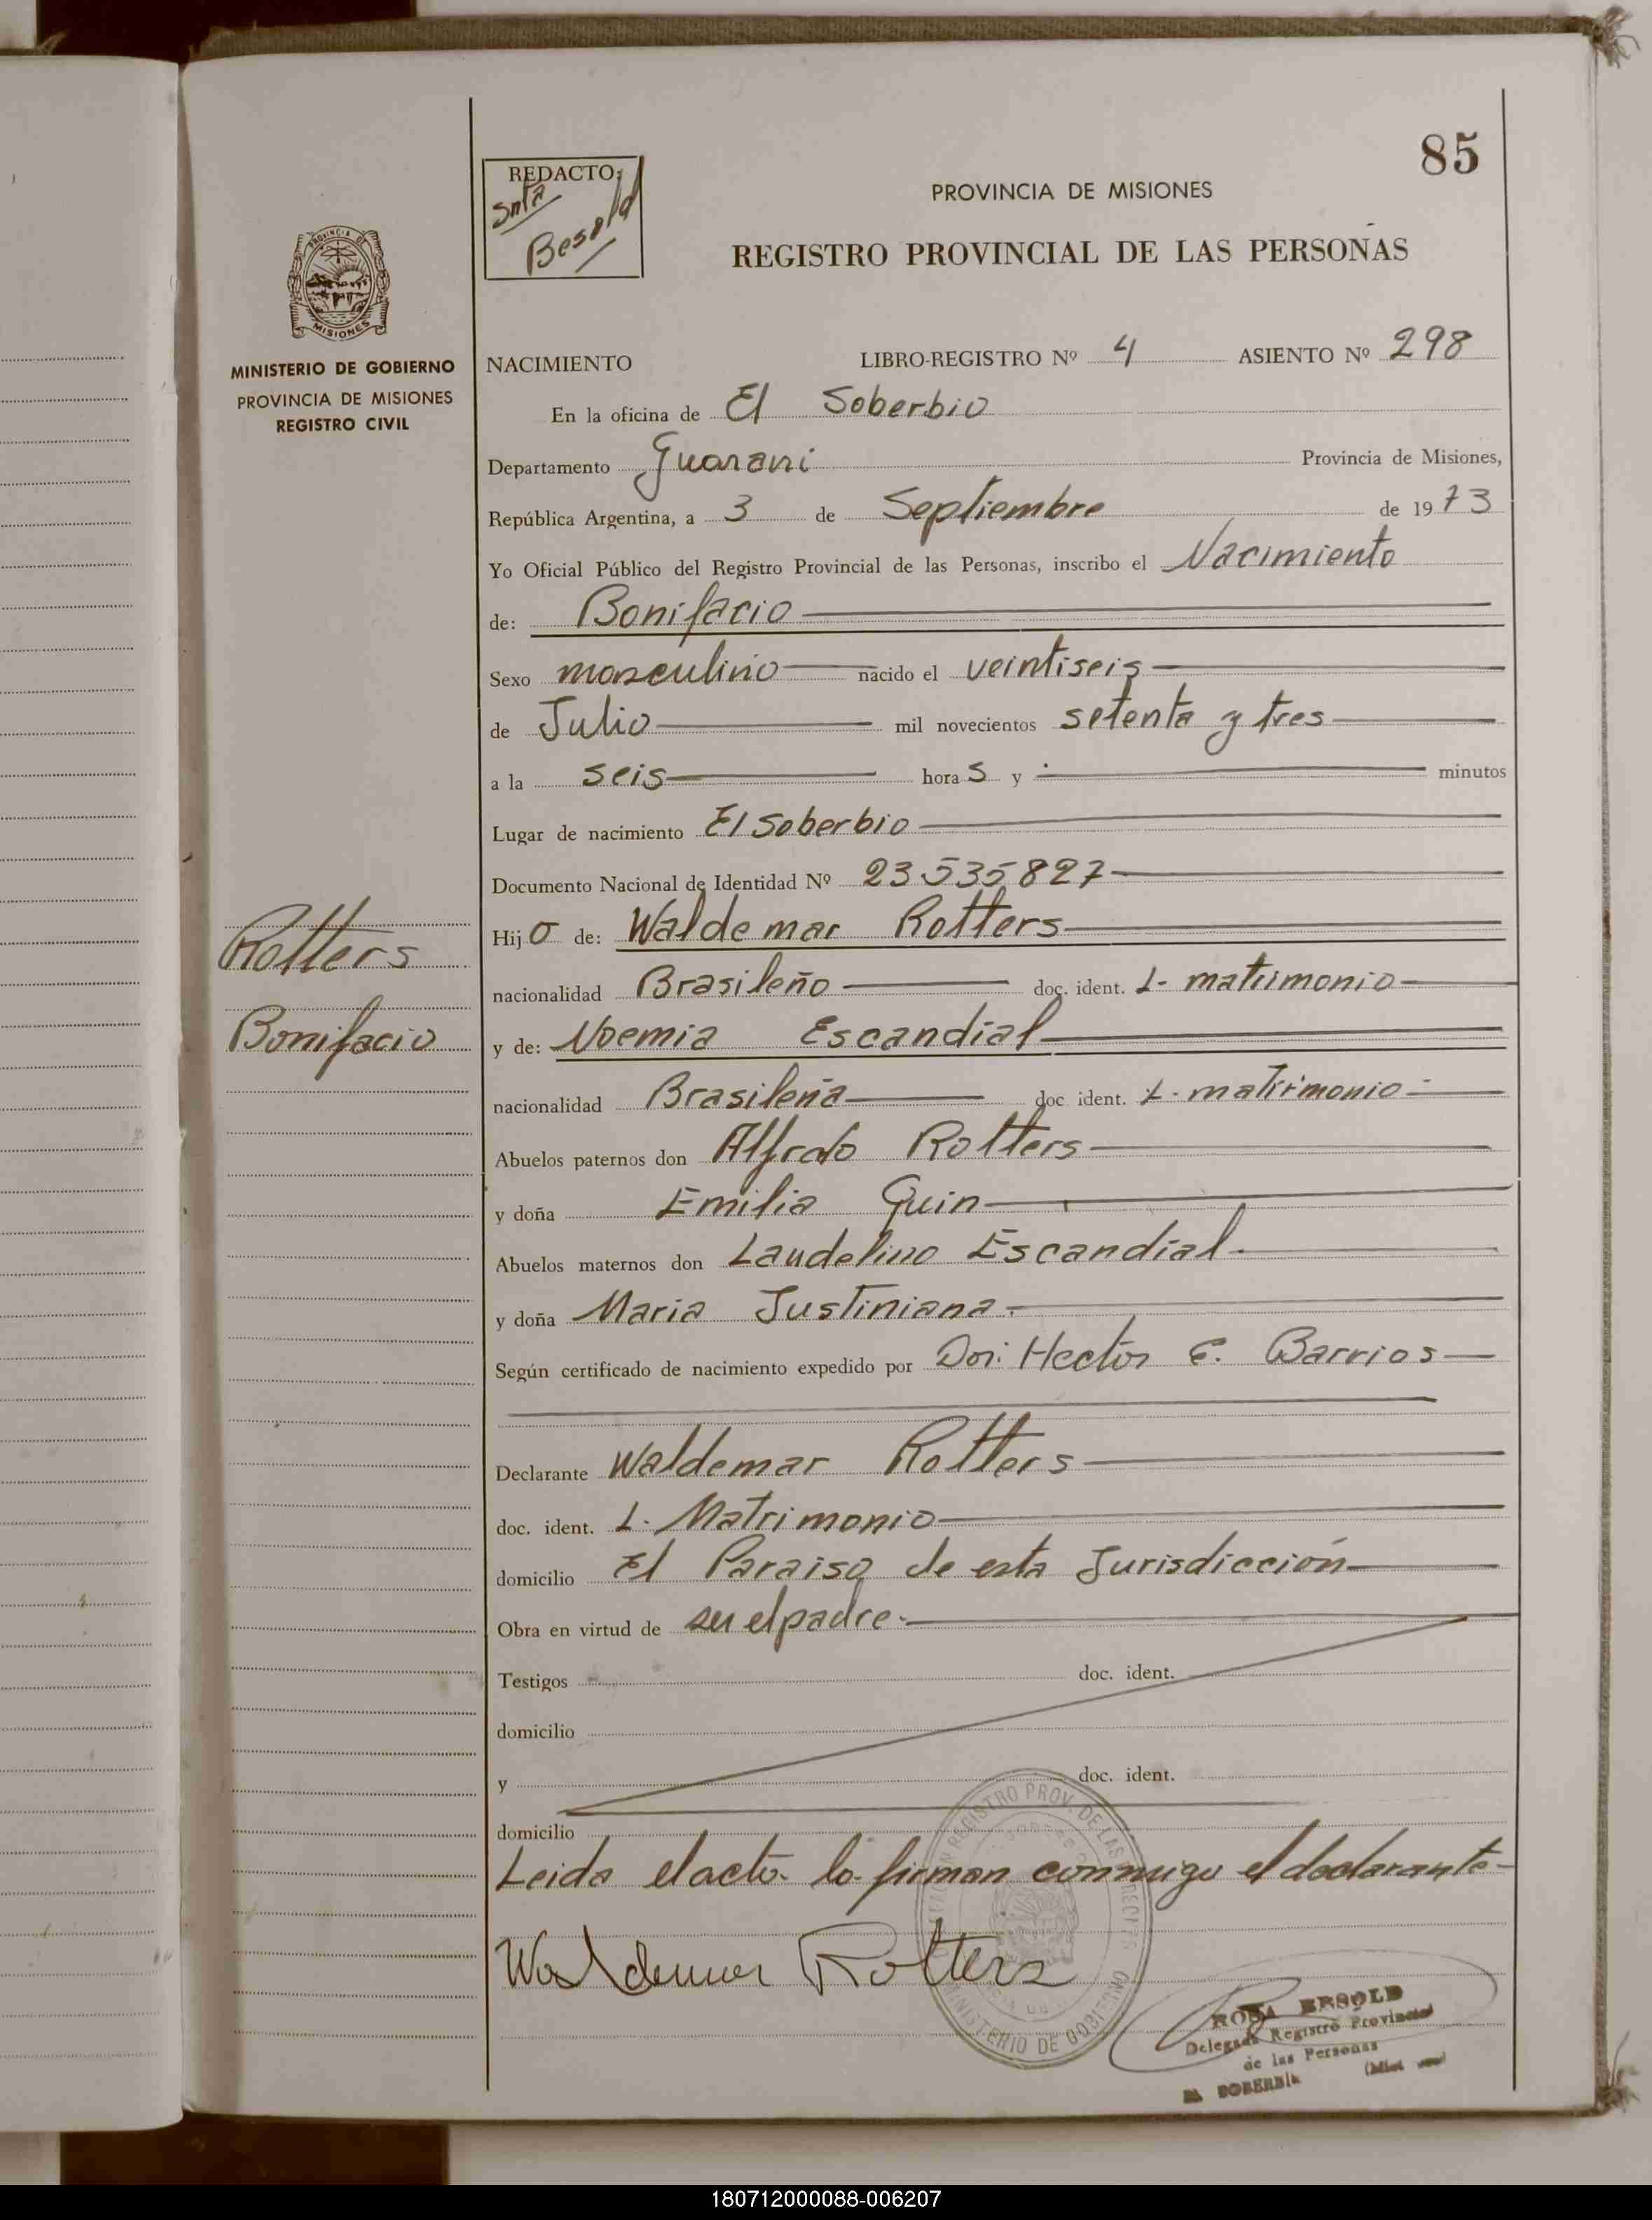 85
REDACTO:
Snta
Besold
PROVINCIA DE MISIONES
REGISTRO PROVINCIAL DE LAS PERSONAS
PROVINCIA DE
MISIONES
MINISTERIO DE GOBIERNO
PROVINCIA DE MISIONES
REGISTRO CIVIL
NACIMIENTO LIBRO-REGISTRO Nº 4 ASIENTO Nº 298
En la oficina de El Soberbio
Departamento Guarani Provincia de Misiones,
República Argentina, a 3 de Septiembre de 1973
Yo Oficial Público del Registro Provincial de las Personas, inscribo el Nacimiento
de: Bonifacio
Sexo masculino nacido el veintiseis
de Julio mil novecientos setenta y tres
a la seis horas y minutos
Lugar de nacimiento El Soberbio
Documento Nacional de Identidad Nº 23535827
Rotters
Bonifacio
Hijo de: Waldemar Rotters
nacionalidad Brasileño doc. ident. L- matrimonio
y de: Noemia Escandial
nacionalidad Brasileña doc ident. L. matrimonio
Abuelos paternos don Alfredo Rotters
y doña Emilia Quin
Abuelos maternos don Laudelino Escandial.
y doña Maria Justiniana.
Según certificado de nacimiento expedido por Don: Hector E. Barrios
Declarante Waldemar Rotters
doc. ident. L. Matrimonio
domicilio El Paraiso de esta Jurisdicción
Obra en virtud de ser el padre.
Testigos doc. ident.
domicilio
y doc. ident.
domicilio
Leida el acta la firman conmigo el declarante
Waldemar Rotters
REGISTRO PROV. DE LAS
MINISTERIO DE GOBIERNO
ROSA BESOLD
Delegada Registro Provincial
de las Personas
EL SOBERBIO
180712000088-006207